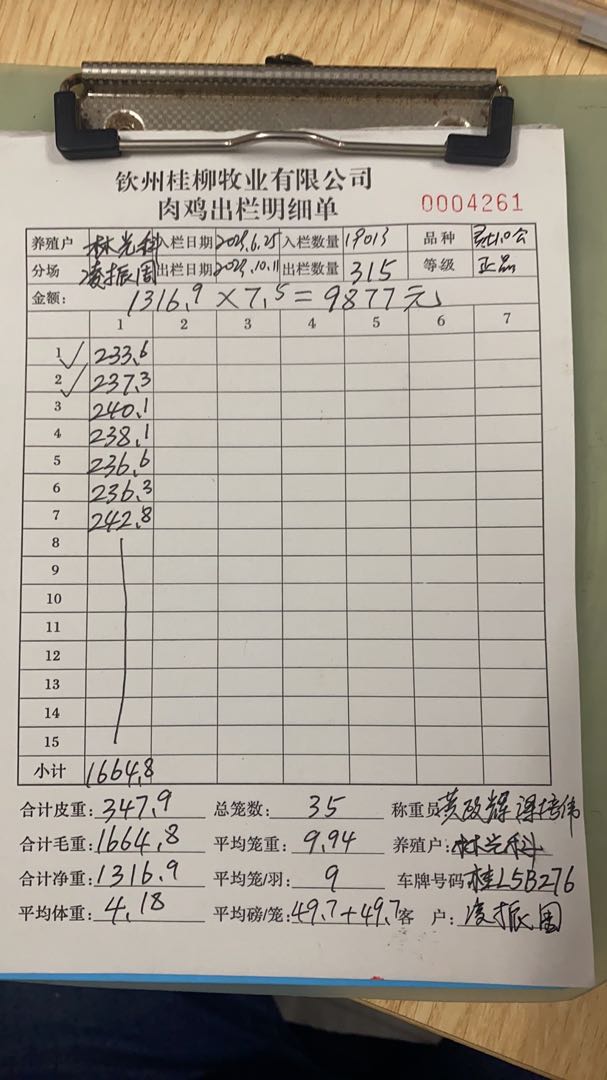 钦州桂柳牧业有限公司
肉鸡出栏明细单 0004261
养殖户 林光科 入栏日期 6.25 入栏数量 19013 品种
分场 凌振周 出栏日期 10.11 出栏数量 315 等级 正品
金额: 1316.9 × 7.5 = 9877元
1 2 3 4 5 6 7
1 ✓ 233.6
2 ✓ 237.3
3 240.1
4 238.1
5 236.6
6 236.3
7 242.8
8
9
10
11
12
13
14
15
小计 1664.8
合计皮重: 347.9 总笼数: 35 称重员 黄政辉 梁培伟
合计毛重: 1664.8 平均笼重: 9.94 养殖户: 林光科
合计净重: 1316.9 平均笼/羽: 9 车牌号码 桂L5B276
平均体重: 4.18 平均磅/笼: 49.7+49.7 客 户: 凌振周